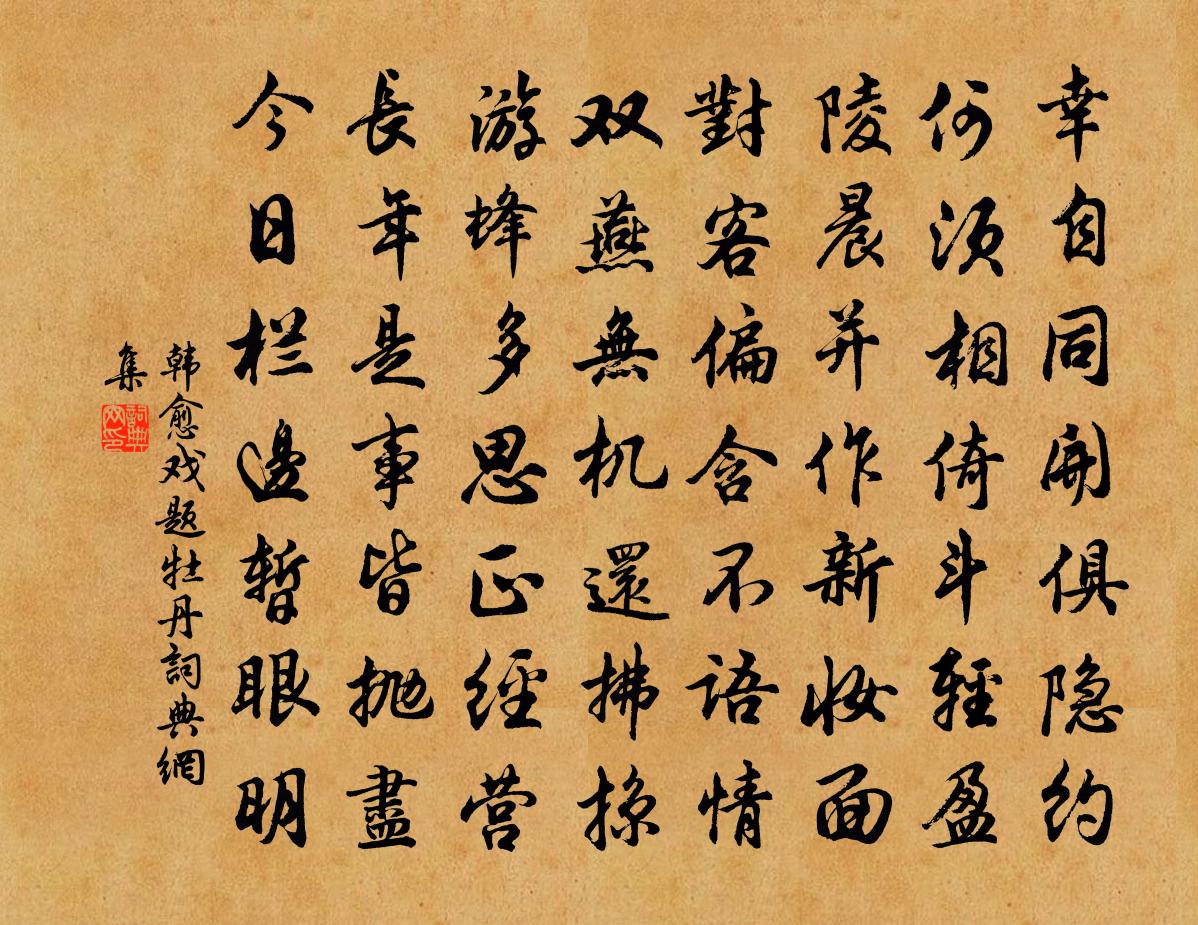 幸自同開俱隐约
何须相倚斗輕盈
陵晨并作新妝面
對客偏含不語情
双燕無机還拂掠
游蜂多思正經营
長年是事皆抛盡
今日栏邊暫眼明
韩愈戏题牡丹詞典網
集
詞典
网印